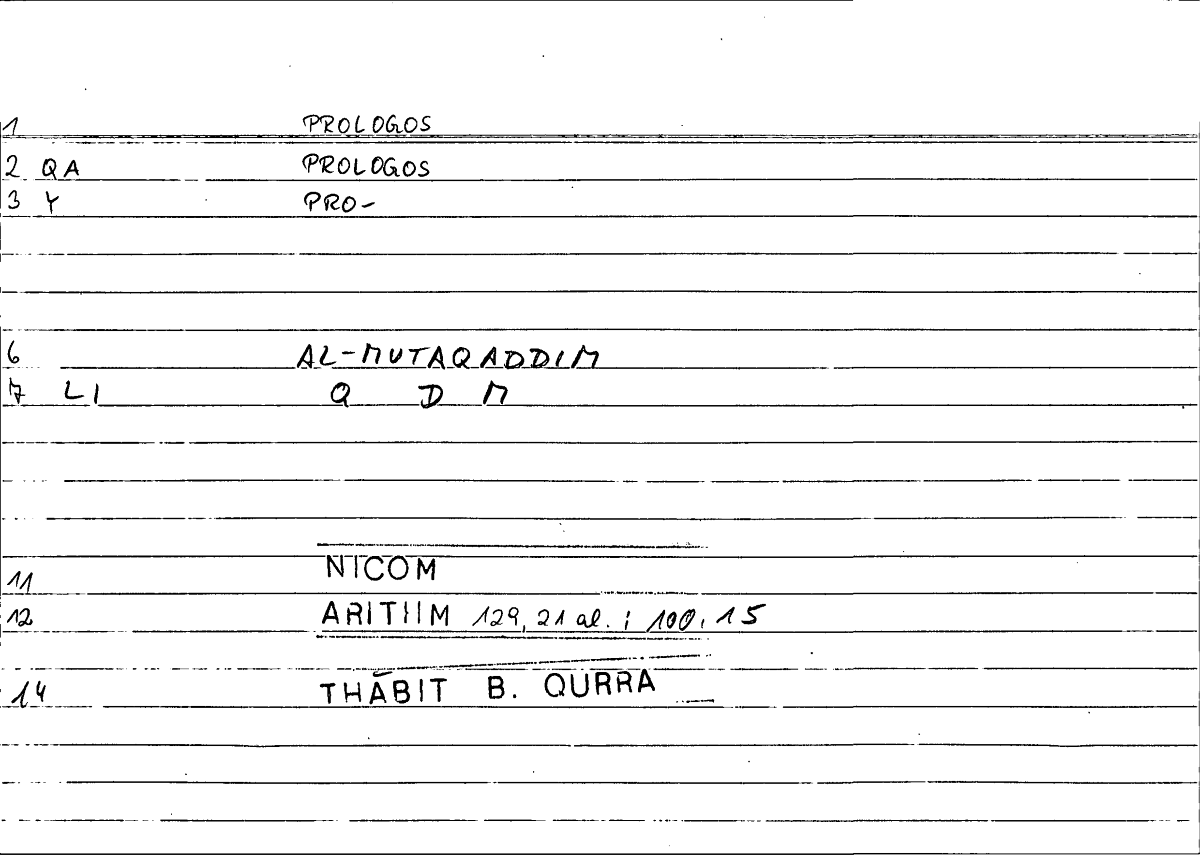 1 PROLOGOS
2 QA PROLOGOS
3 Y PRO-
6 AL-MUTAQADDIM
7 LI Q D M
11 NICOM
12 ARITHM 129,21 al. ; 100,15
14 THĀBIT B. QURRA